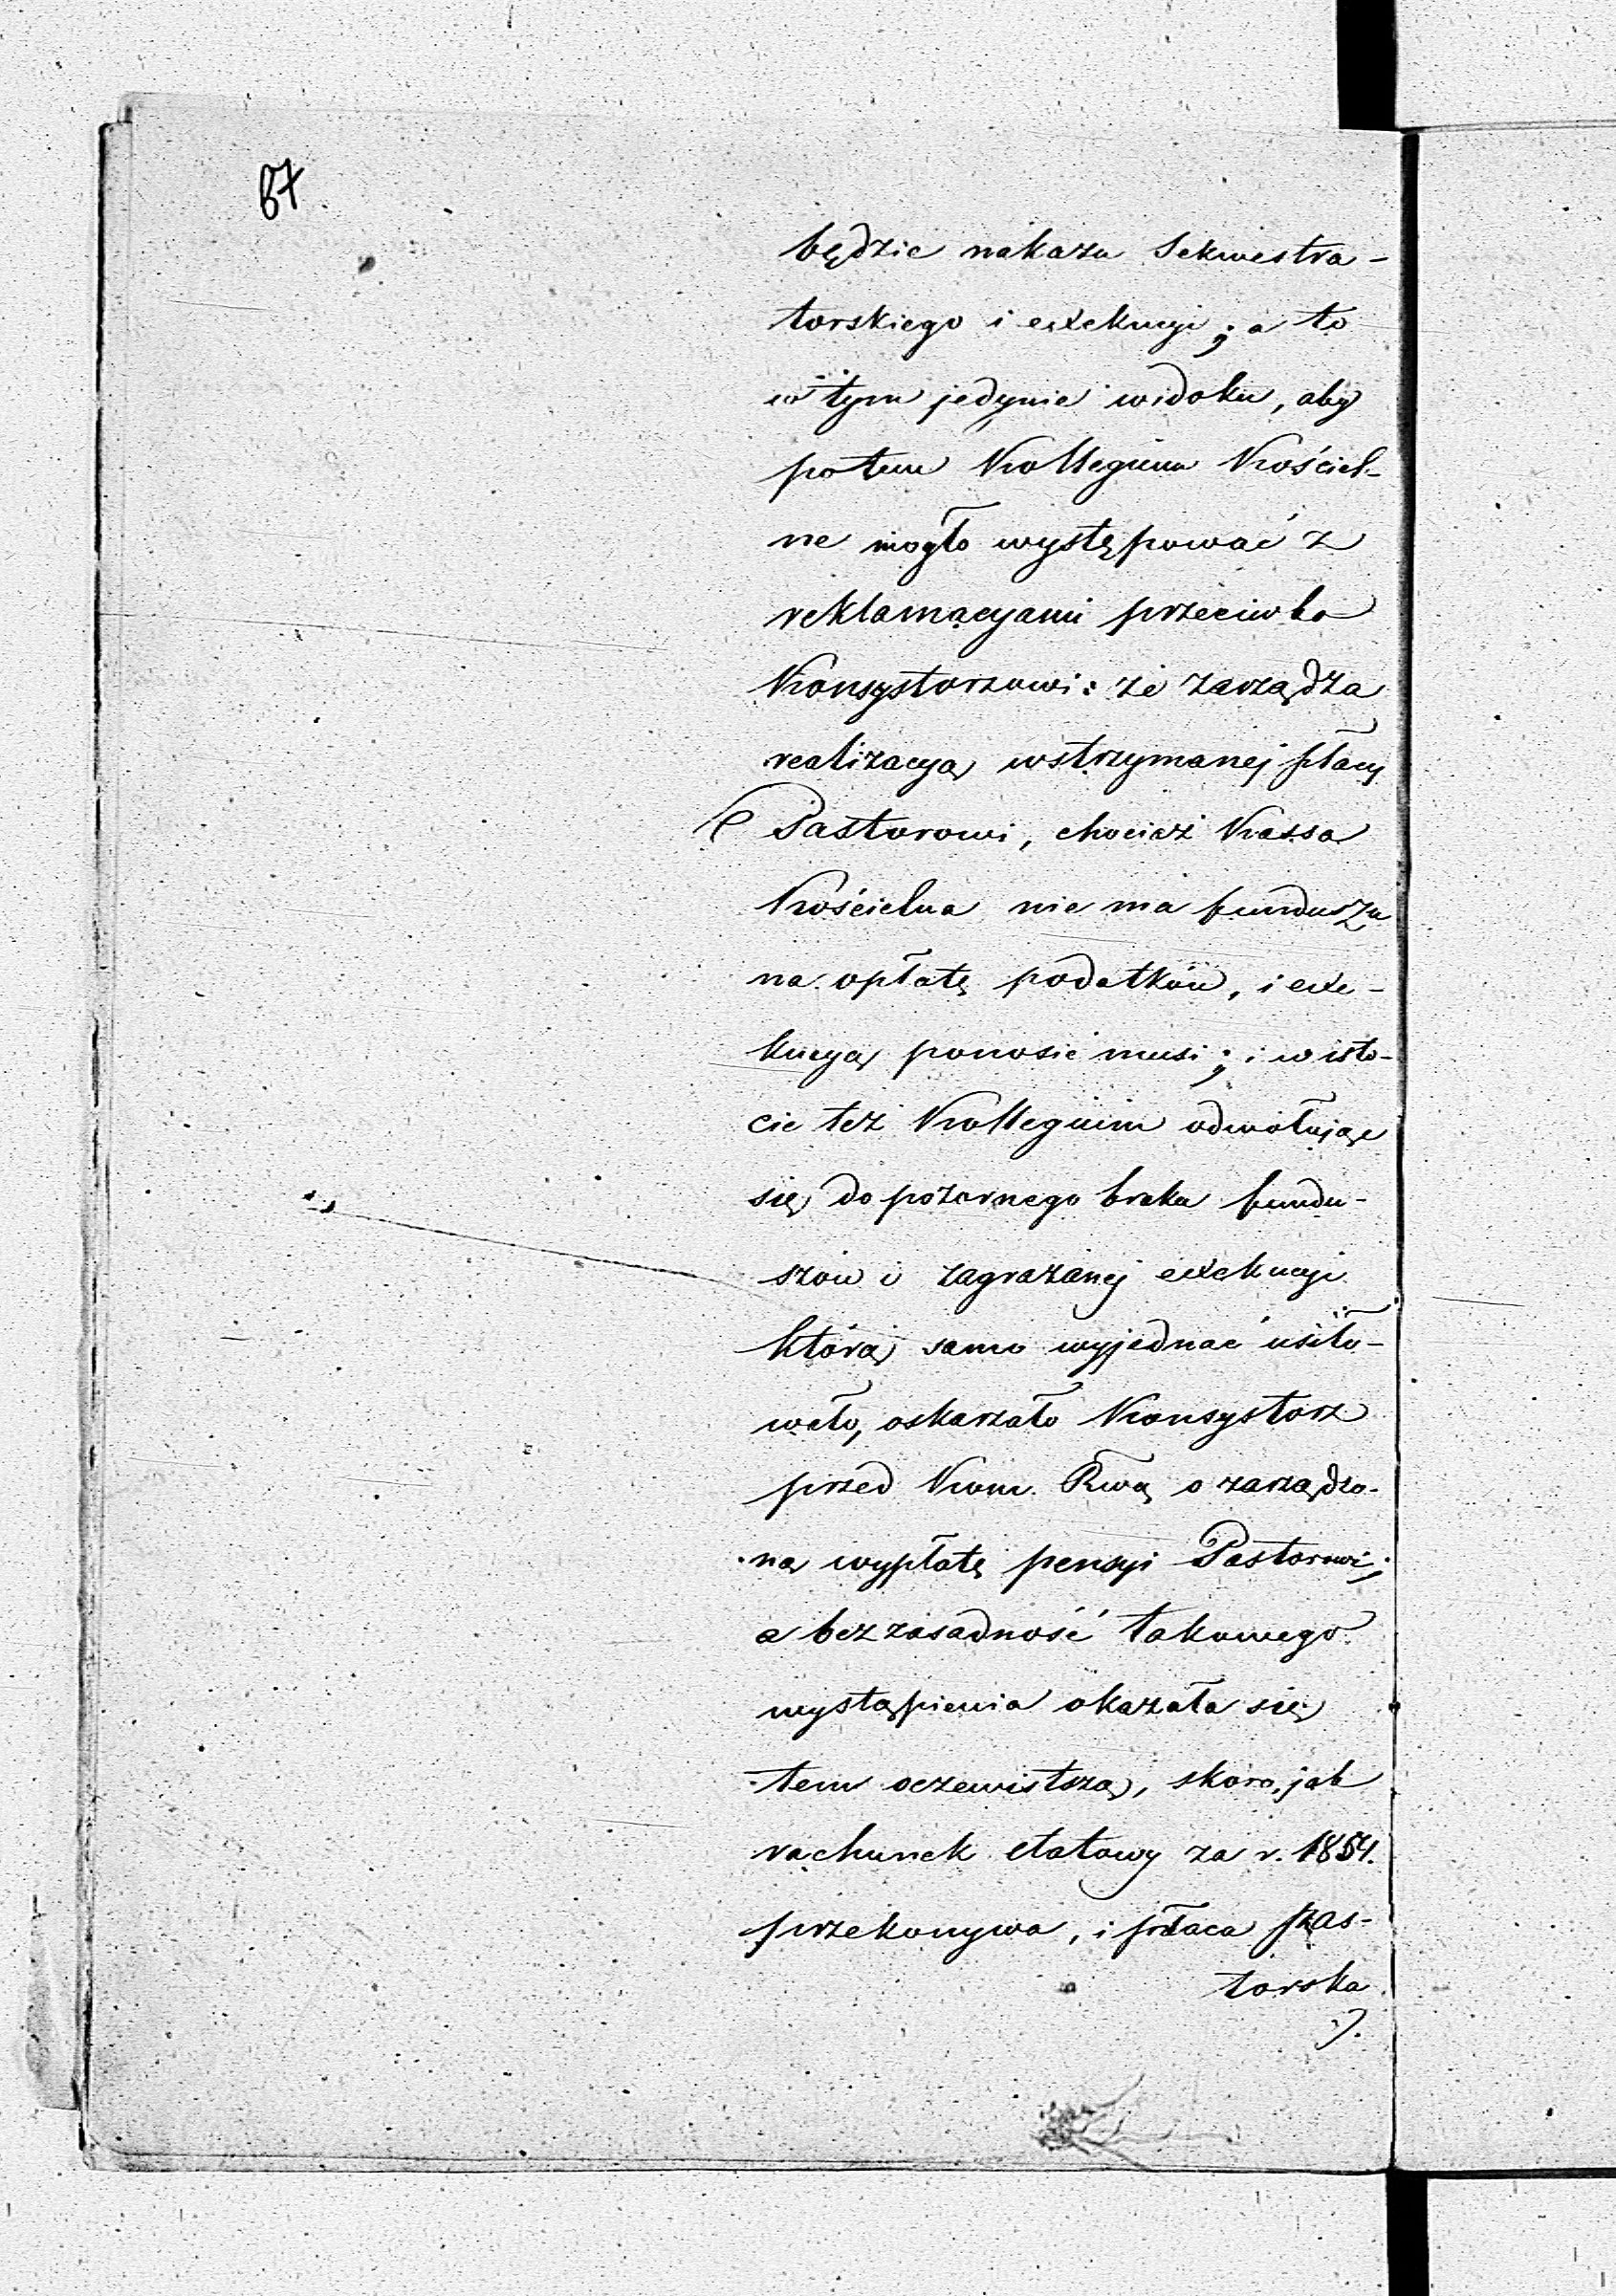 67
będzie nakazu Sekwestra-
torskiego i exekucyi; a to
w tym jedynie widoku, aby
potem Kollegium Kościel-
ne mogło występować z
reklamacyami przeciwko
Konsystorzowi: że zarządza
realizacyą wstrzymanej płacy
Pastorowi, chociaż Kassa
Kościelna nie ma funduszu
na opłatę podatków, i exe-
kucyą ponosić musi; i w isto-
cie też Kollegium odwołując
się do pozornego braku fundu-
szów i zagrażanej exekucyi
którą samo wyjednać usiło-
wało, oskarżało Konsystorz
przed Kom. Rwą o zarządzo-
ną wypłatę pensyi Pastorowi;
a bezzasadność takowego
wystąpienia okazała się
tem oczewistszą, skoro, jak
rachunek etatowy za r. 1854.
przekonywa, i płaca pas-
torska